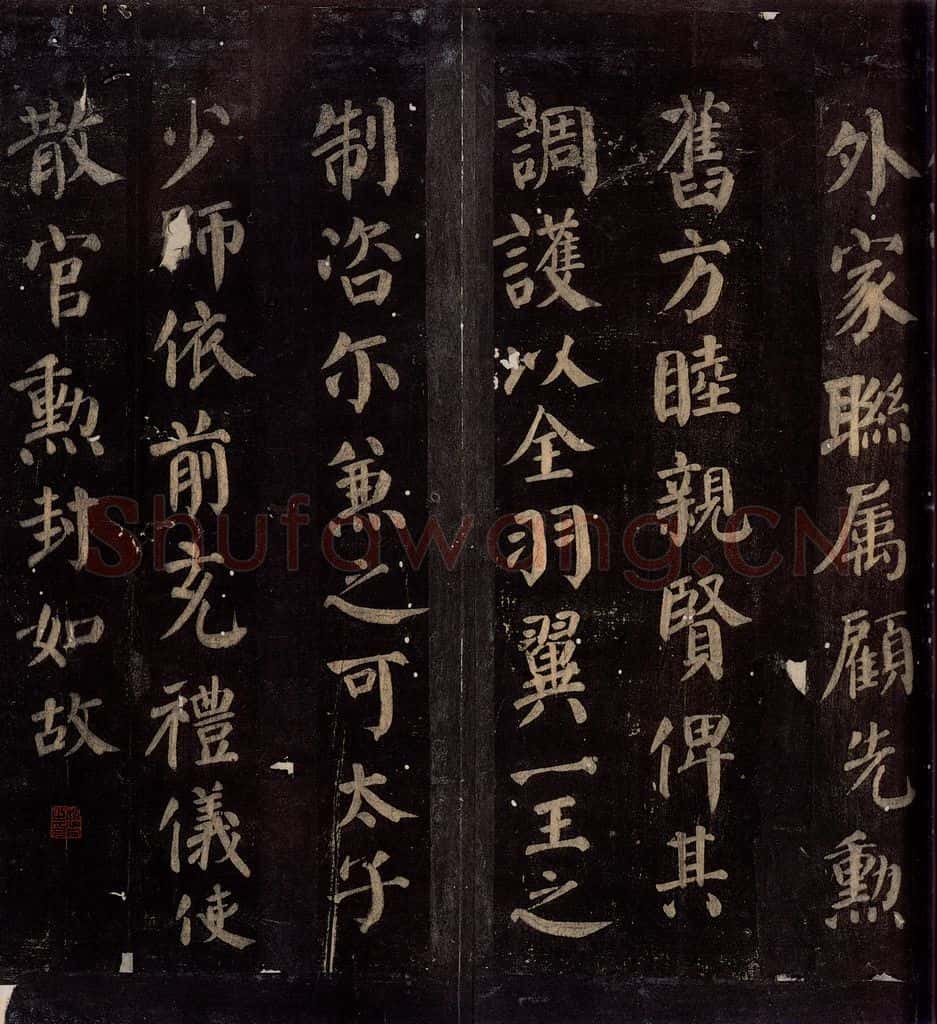 外家聯属顧先勲
舊方睦親賢俾其
調護以全羽翼一王之
制咨尓兼之可太子
少師依前充禮儀使
散官勲封如故
Shufawang.CN